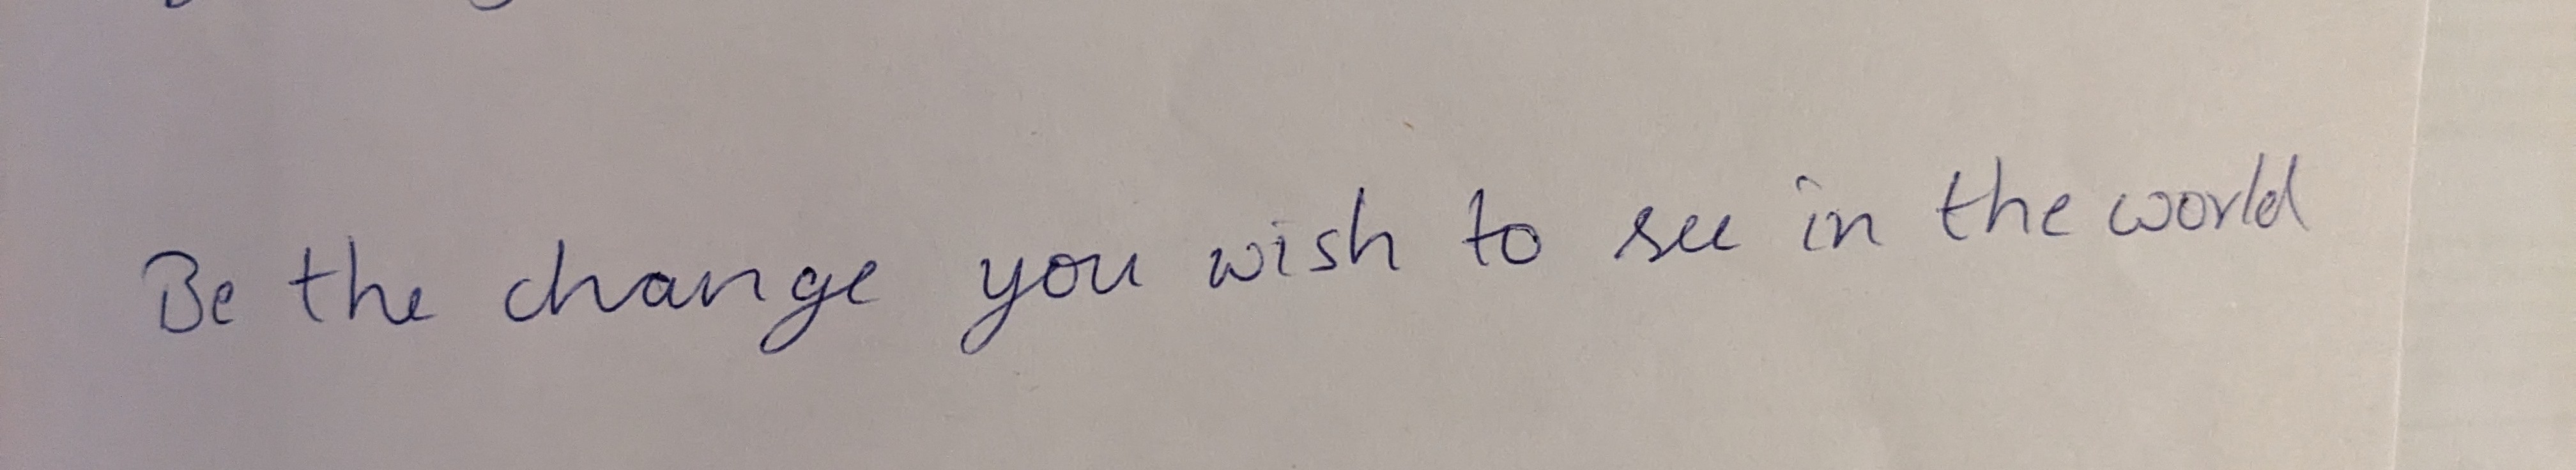 Be the change you wish to see in the world